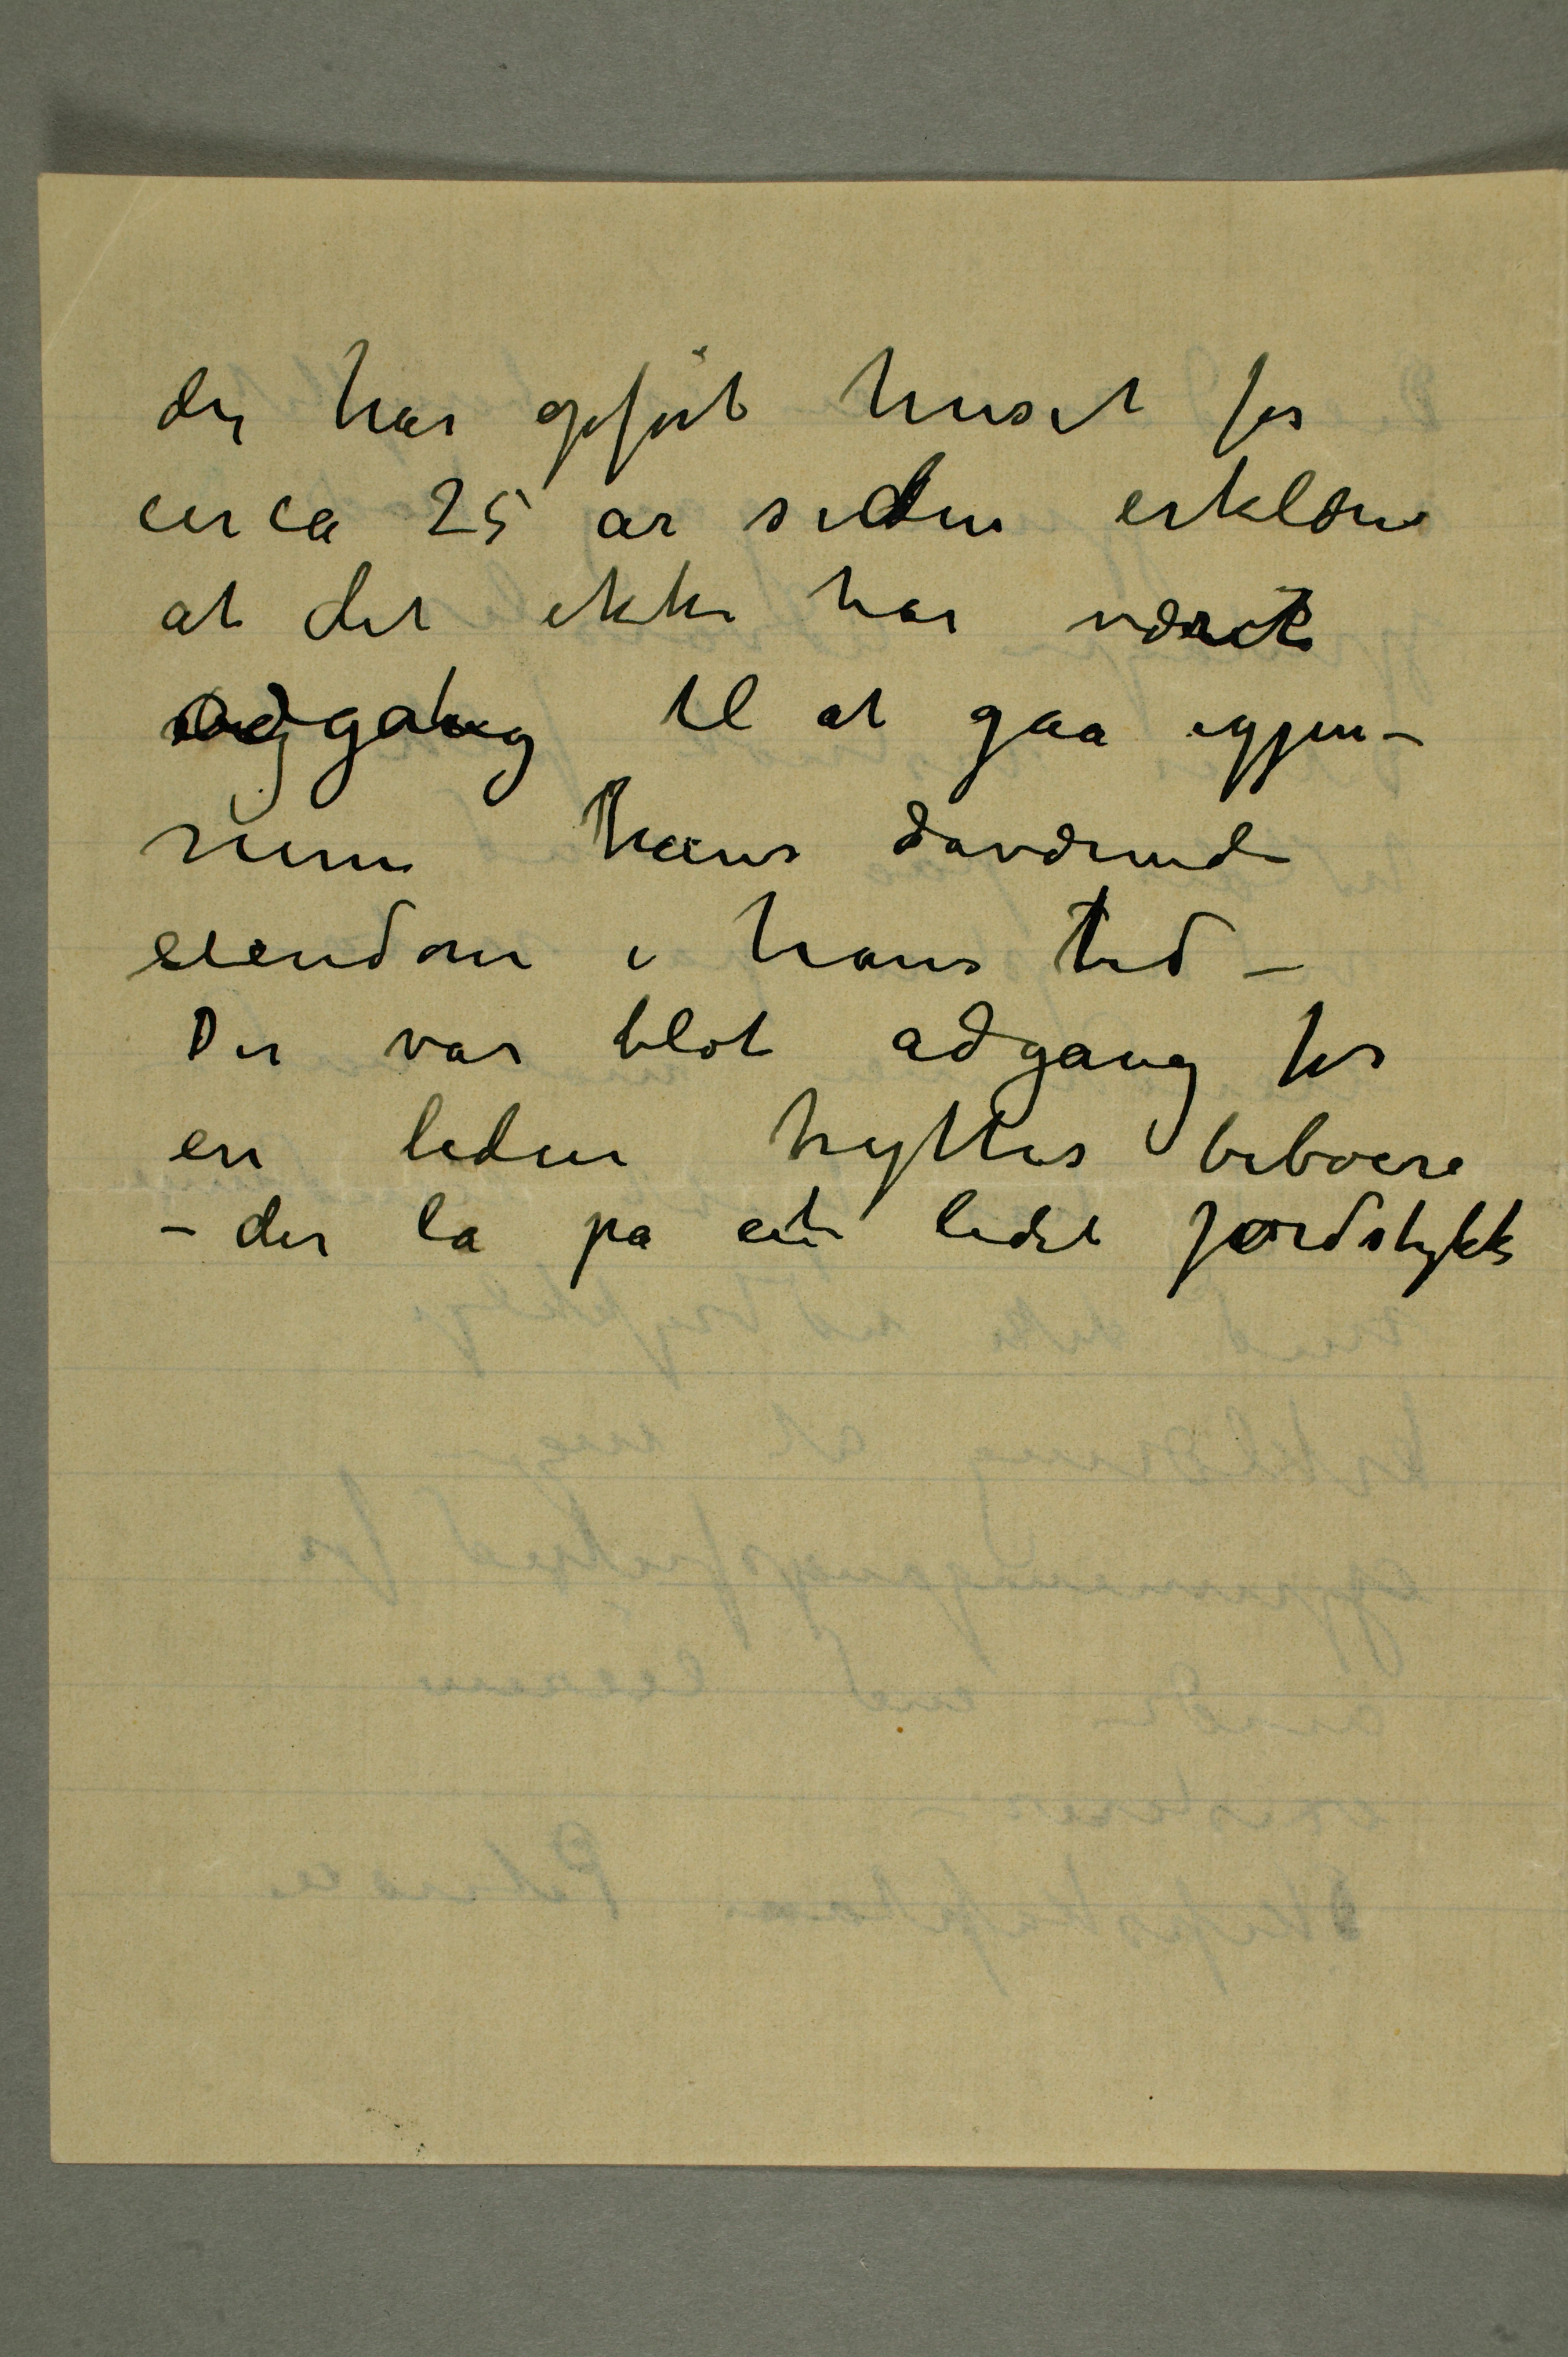 der har opført huset for
circa 25 år siden erklære
at det ikke har været
adgang til at gaa igjen-
nem hans daværende
eiendom i hans tid –
Der var blot adgang for
en liden hyttes beboere
– der la på et lidet jordstykke